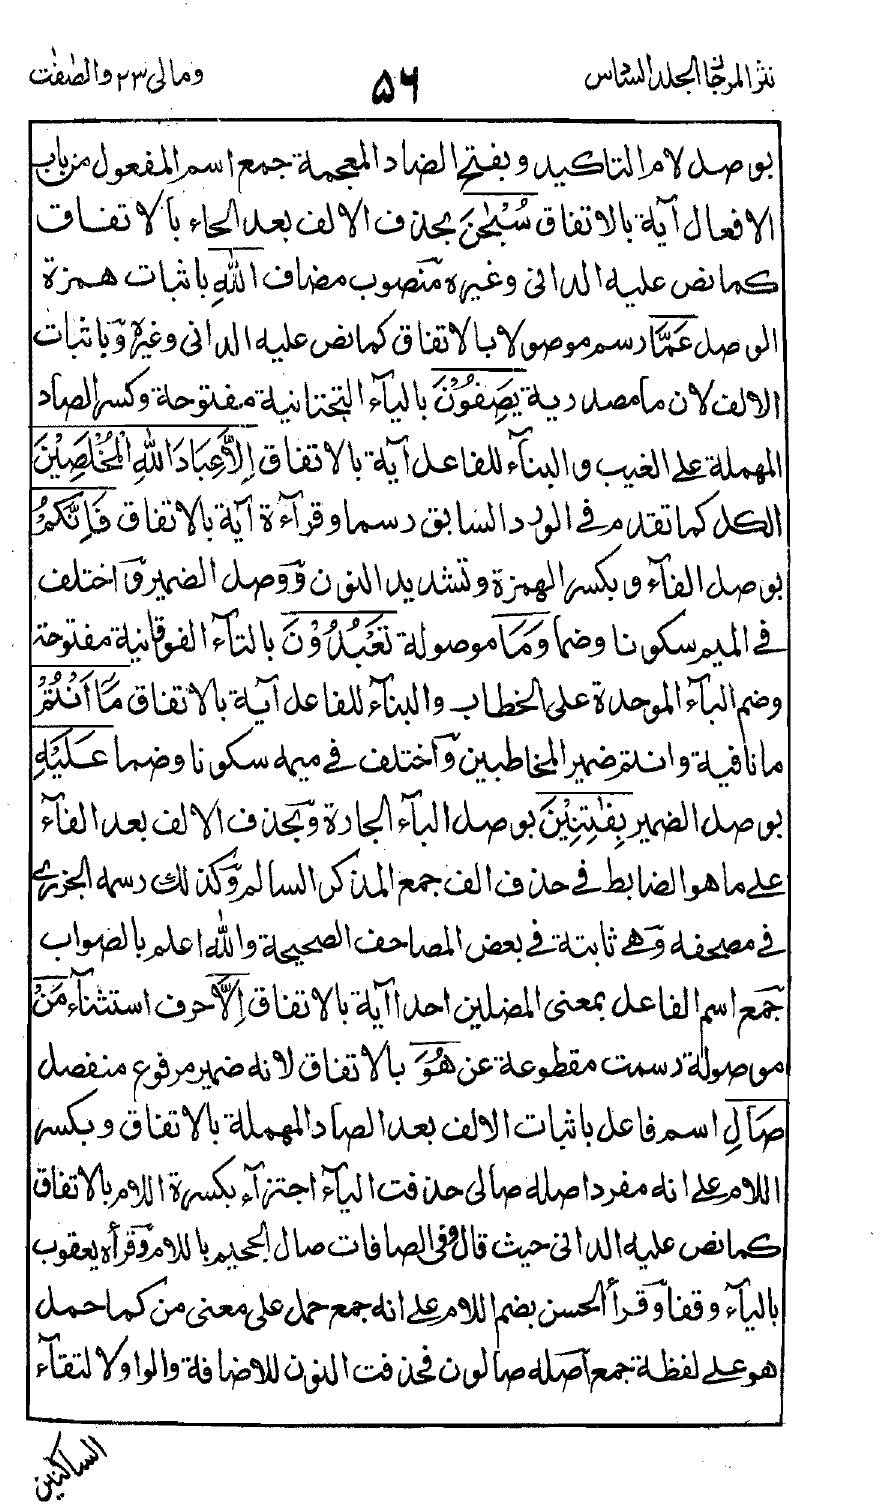 نثر المرجان الجلد السادس
۵۶
ومالی ٢٣ والصّٰفّٰت
بوصل لام التاكيد وبفتح الضاد المعجمة جمع اسم المفعول من باب
الافعال آية بالاتفاق سُبْحٰنَ بحذف الالف بعد الحاء بالاتفاق
كما نص عليه الدانى وغيره منصوب مضاف اللّٰهِ باثبات همزة
الوصل عَمَّا رسم موصولا بالاتفاق كما نص عليه الدانى وغيره وباثبات
الالف لان ما مصدرية يَصِفُوْنَ باليآء التحتانية مفتوحة وكسر الصاد
المهملة على الغيب والبنآء للفاعل آية بالاتفاق اِلَّا عِبَادَ اللّٰهِ الْمُخْلَصِيْنَ
الكل كما تقدم فى الورد السابق رسما وقرآءة آية بالاتفاق فَاِنَّكُمْ
بوصل الفآء وبكسر الهمزة وتشديد النون ووصل الضمير واختلف
فى الميم سكونا وضما وَمَا موصولة تَعْبُدُوْنَ بالتآء الفوقانية مفتوحة
وضم البآء الموحدة على الخطاب والبنآء للفاعل آية بالاتفاق مَآ اَنْتُمْ
ما نافية وانتم ضمير المخاطبين واختلف فى ميمه سكونا وضما عَلَيْهِ
بوصل الضمير بِفٰتِنِيْنَ بوصل البآء الجارة وبحذف الالف بعد الفآء
على ما هو الضابط فى حذف الف جمع المذكر السالم وكذلك رسمه الجزرى
فى مصحفه وهى ثابتة فى بعض المصاحف الصحيحة والله اعلم بالصواب
جمع اسم الفاعل بمعنى المضلين احدا آية بالاتفاق اِلَّا حرف استثنآء مَنْ
موصولة رسمت مقطوعة عن هُوَ بالاتفاق لانه ضمير مرفوع منفصل
صَالِ اسم فاعل باثبات الالف بعد الصاد المهملة بالاتفاق وبكسر
اللام على انه مفرد اصله صالى حذفت اليآء اجتزآء بكسرة اللام بالاتفاق
كما نص عليه الدانى حيث قال وفى الصافات صال الجحيم باللام وقرأه يعقوب
باليآء وقفا وقرأ الحسن بضم اللام على انه جمع حمل على معنى من كما حمل
هو على لفظة جمع اصله صالون فحذفت النون للاضافة والواو لالتقآء
الساكنين